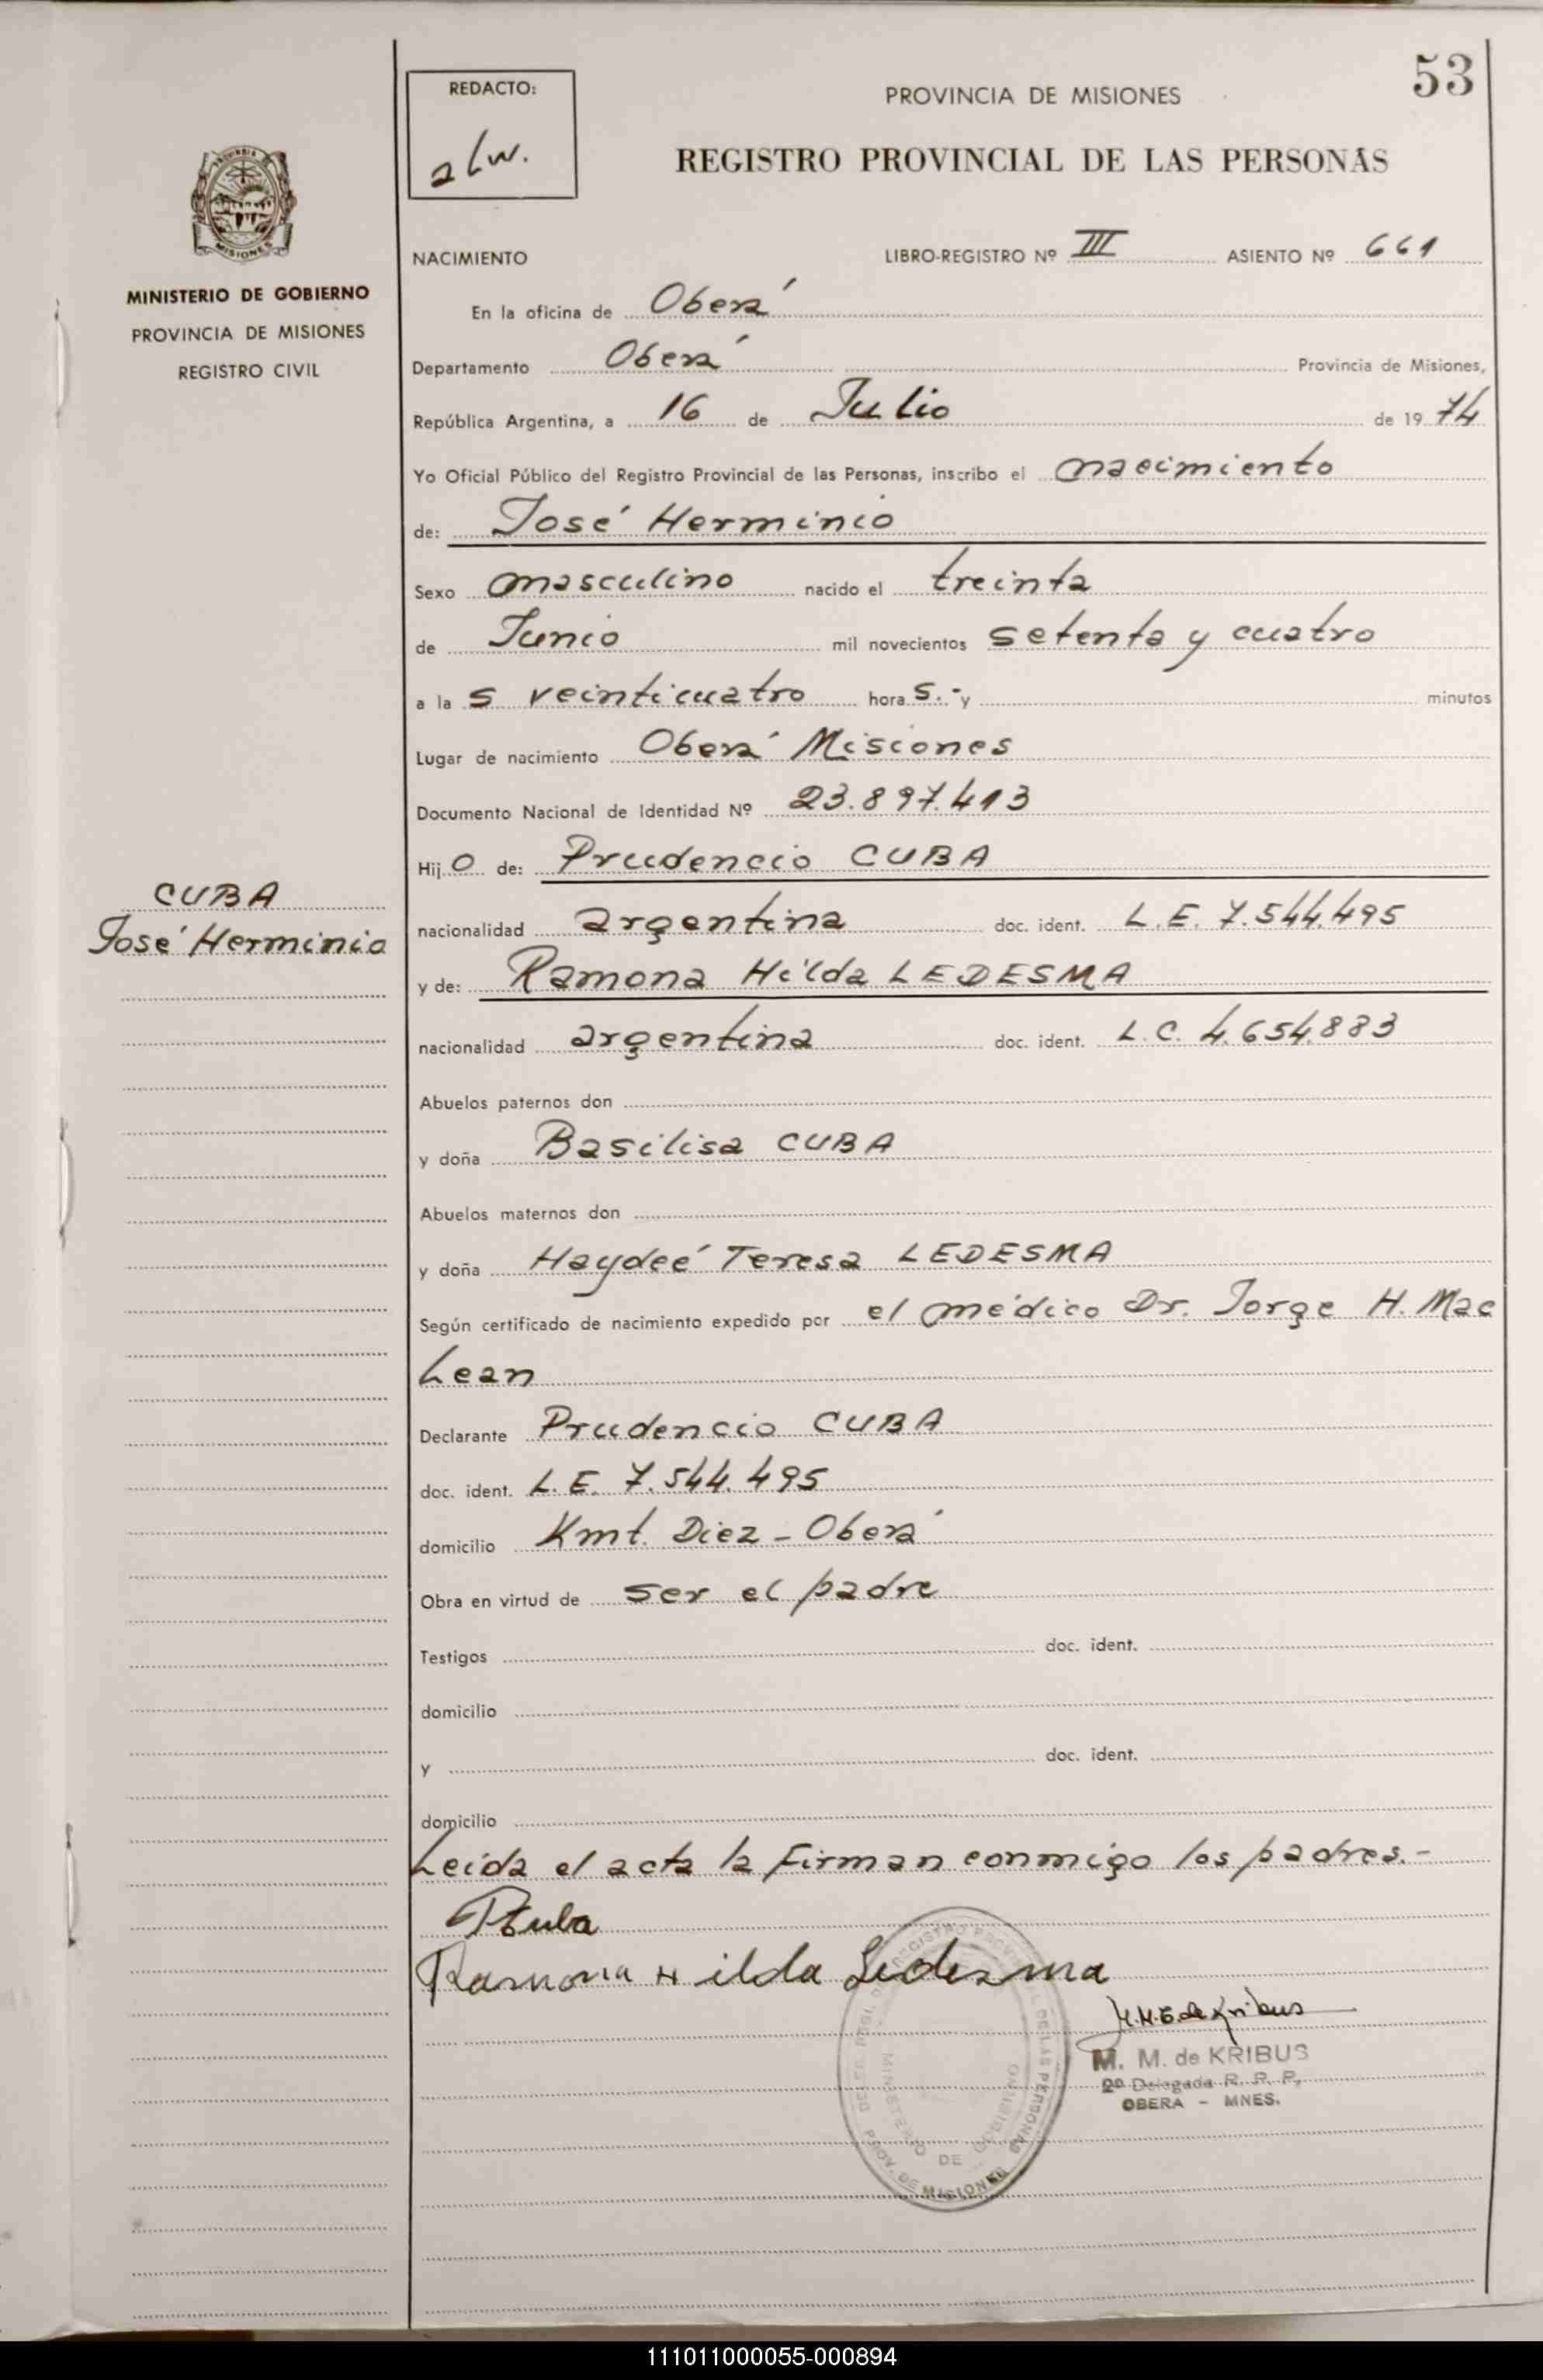 53
REDACTO:
PROVINCIA DE MISIONES
REGISTRO PROVINCIAL DE LAS PERSONAS
PROVINCIA DE
MISIONES
MINISTERIO DE GOBIERNO
PROVINCIA DE MISIONES
REGISTRO CIVIL
NACIMIENTO LIBRO-REGISTRO Nº III ASIENTO Nº 661
En la oficina de Oberá
Departamento Oberá Provincia de Misiones,
República Argentina, a 16 de Julio de 1974
Yo Oficial Público del Registro Provincial de las Personas, inscribo el nacimiento
de: José Herminio
Sexo masculino nacido el treinta
de Junio mil novecientos setenta y cuatro
a las veinticuatro horas.- y minutos
Lugar de nacimiento Oberá Misiones
Documento Nacional de Identidad Nº 23.897.413
Hijo de: Prudencio CUBA
CUBA
José Herminio
nacionalidad argentina doc. ident. L.E. 7.544.495
y de: Ramona Hilda LEDESMA
nacionalidad argentina doc. ident. L.C. 4.654.883
Abuelos paternos don
y doña Basilisa CUBA
Abuelos maternos don
y doña Haydeé Teresa LEDESMA
Según certificado de nacimiento expedido por el médico Dr. Jorge H. Mac
Lean
Declarante Prudencio CUBA
doc. ident. L.E. 7.544.495
domicilio Kmt. Diez - Oberá
Obra en virtud de ser el padre
Testigos doc. ident.
domicilio
y doc. ident.
domicilio
Leída el acta la firman conmigo los padres.-
PCuba
Ramona Hilda Ledezma
de Kribus
M. M. de KRIBUS
2º Delegada R. P. P.
OBERA - MNES.
REGISTRO PROVINCIAL DE LAS PERSONAS
PROV. DE MISIONES
MINISTERIO DE GOBIERNO
111011000055-000894